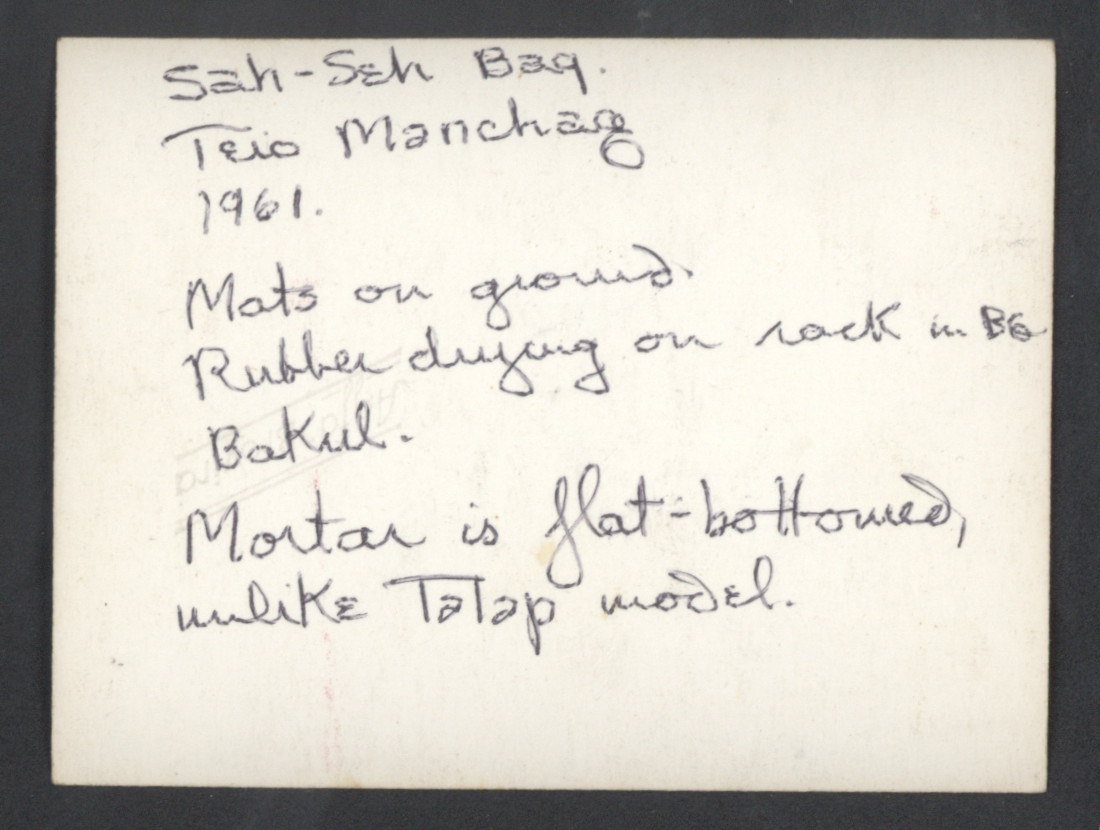 Sah-Seh Bag.
Teio Manchag
1961.
Mats on ground.
Rubber drying on rack in BG
Bakul.
Mortar is flat-bottomed,
unlike Talap model.